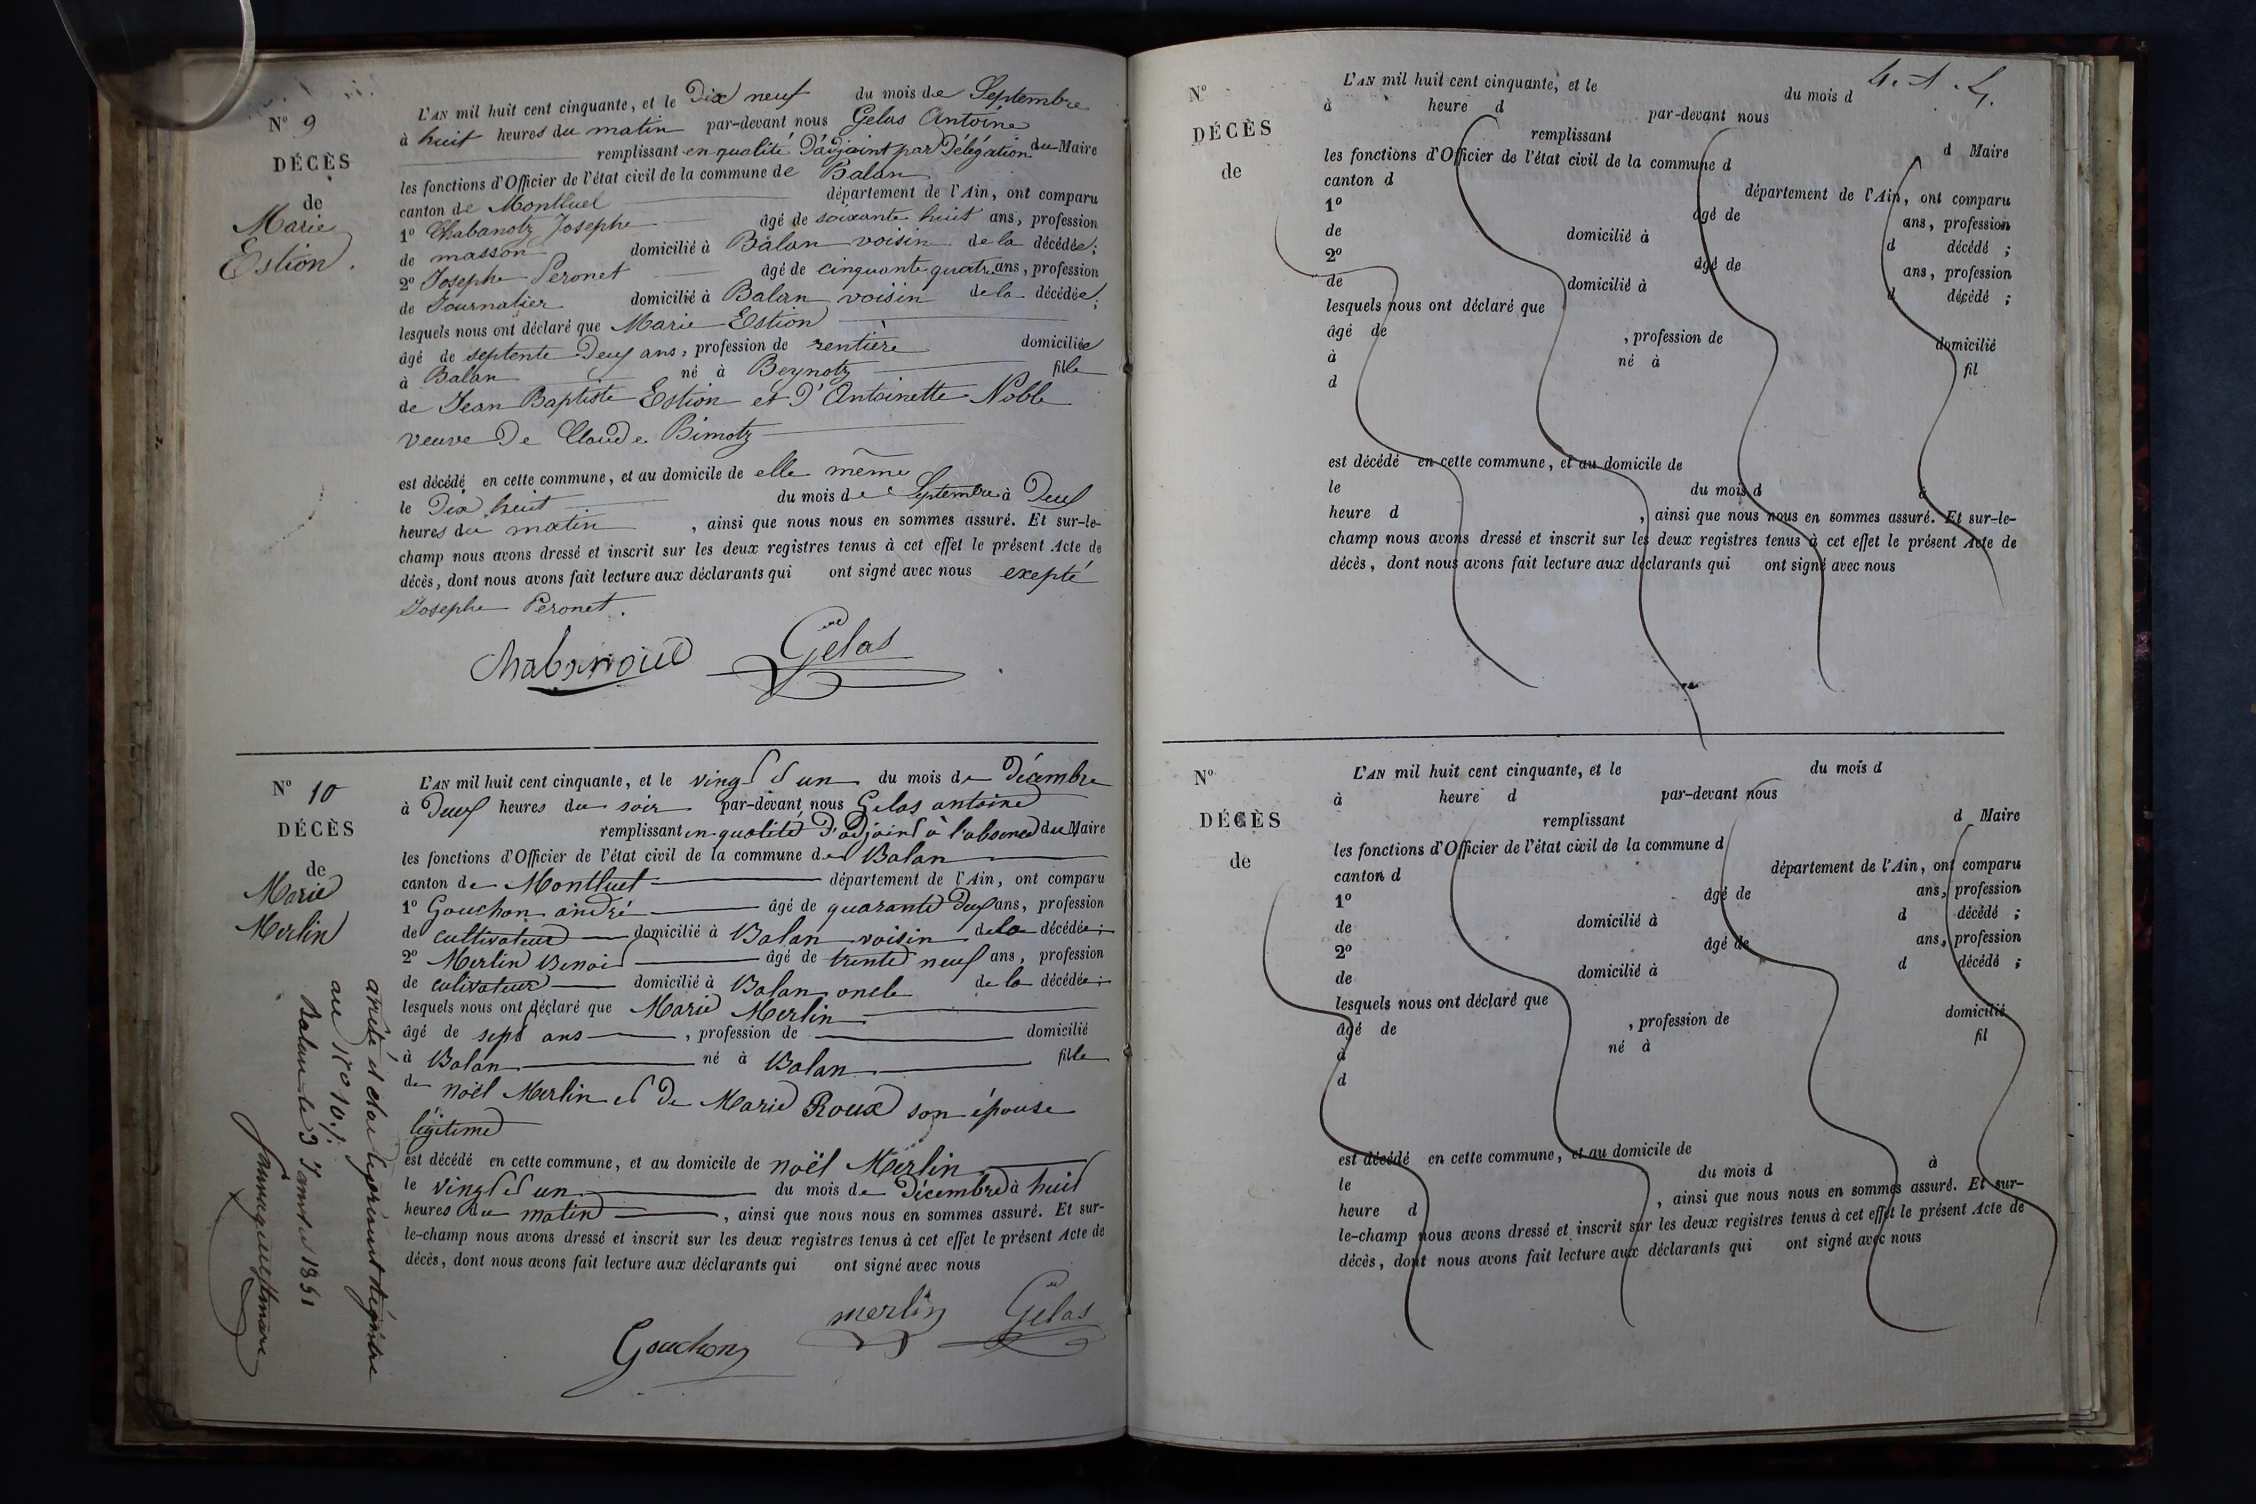 N° 9
DÉCÈS
de
Marie
Estion.
L'AN mil huit cent cinquante, et le Dix neuf du mois de Septembre
à huit heures du matin par-devant nous Gelas Antoine
remplissant en qualité D'adjoint par Délégation du Maire
les fonctions d'Officier de l'état civil de la commune de Balan
canton de Montluel département de l'Ain, ont comparu
1° Chabanotz Josephe âgé de soixante huit ans, profession
de masson domicilié à Balan voisin de la décédée;
2° Josephe Peronet âgé de cinquante quatre ans, profession
de Journalier domicilié à Balan voisin de la décédée;
lesquels nous ont déclaré que Marie Estion
âgé de septente Deux ans, profession de rentière domiciliée
à Balan né à Beynotz fille
de Jean Baptiste Estion et D'Antoinette Noble
veuve De Claude Bimotz
est décédé en cette commune, et au domicile de elle même
le Dix huit du mois de Septembre à Deux
heures du matin, ainsi que nous nous en sommes assuré. Et sur-le-
champ nous avons dressé et inscrit sur les deux registres tenus à cet effet le présent Acte de
décès, dont nous avons fait lecture aux déclarants qui ont signé avec nous exepté
Josephe Peronet.
Chabanoud Gelas
N° 10
DÉCÈS
de
Marie
Merlin
L'AN mil huit cent cinquante, et le vingt et un du mois de Décembre
à Deux heures du soir par-devant nous Gelas antoine
remplissant en qualité D'adjoint à l'absence du Maire
les fonctions d'Officier de l'état civil de la commune de Balan
canton de Montluel département de l'Ain, ont comparu
1° Gouchon andré âgé de quarante Deux ans, profession
de cultivateur domicilié à Balan voisin de la décédée;
2° Merlin Benoit âgé de trente neuf ans, profession
de cultivateur domicilié à Balan oncle de la décédée;
lesquels nous ont déclaré que Marie Merlin
âgé de sept ans, profession de domicilié
à Balan né à Balan fille
de noël Merlin et De Marie Roux son épouse
légitime
est décédé en cette commune, et au domicile de noël Merlin
le vingt et un du mois de Décembre à huit
heures du matin, ainsi que nous nous en sommes assuré. Et sur-
le-champ nous avons dressé et inscrit sur les deux registres tenus à cet effet le présent Acte de
décès, dont nous avons fait lecture aux déclarants qui ont signé avec nous
Gouchon merlin Gelas
arrêté et clos le présent régistre
au N° 10./.
Balan le 3 Janvier 1851
maire
N°
DÉCÈS
de
L'AN mil huit cent cinquante, et le du mois d
à heure d par-devant nous
remplissant d Maire
les fonctions d'Officier de l'état civil de la commune d
canton d département de l'Ain, ont comparu
1° âgé de ans, profession
de domicilié à d décédé ;
2° âgé de ans, profession
de domicilié à d décédé ;
lesquels nous ont déclaré que
âgé de , profession de domicilié
à né à fil
d
est décédé en cette commune, et au domicile de
le du mois d à
heure d , ainsi que nous nous en sommes assuré. Et sur-le-
champ nous avons dressé et inscrit sur les deux registres tenus à cet effet le présent Acte de
décès, dont nous avons fait lecture aux déclarants qui ont signé avec nous
N°
DÉCÈS
de
L'AN mil huit cent cinquante, et le du mois d
à heure d par-devant nous
remplissant d Maire
les fonctions d'Officier de l'état civil de la commune d
canton d département de l'Ain, ont comparu
1° âgé de ans, profession
de domicilié à d décédé ;
2° âgé de ans, profession
de domicilié à d décédé ;
lesquels nous ont déclaré que
âgé de , profession de domicilié
à né à fil
d
est décédé en cette commune, et au domicile de
le du mois d à
heure d , ainsi que nous nous en sommes assuré. Et sur-
le-champ nous avons dressé et inscrit sur les deux registres tenus à cet effet le présent Acte de
décès, dont nous avons fait lecture aux déclarants qui ont signé avec nous